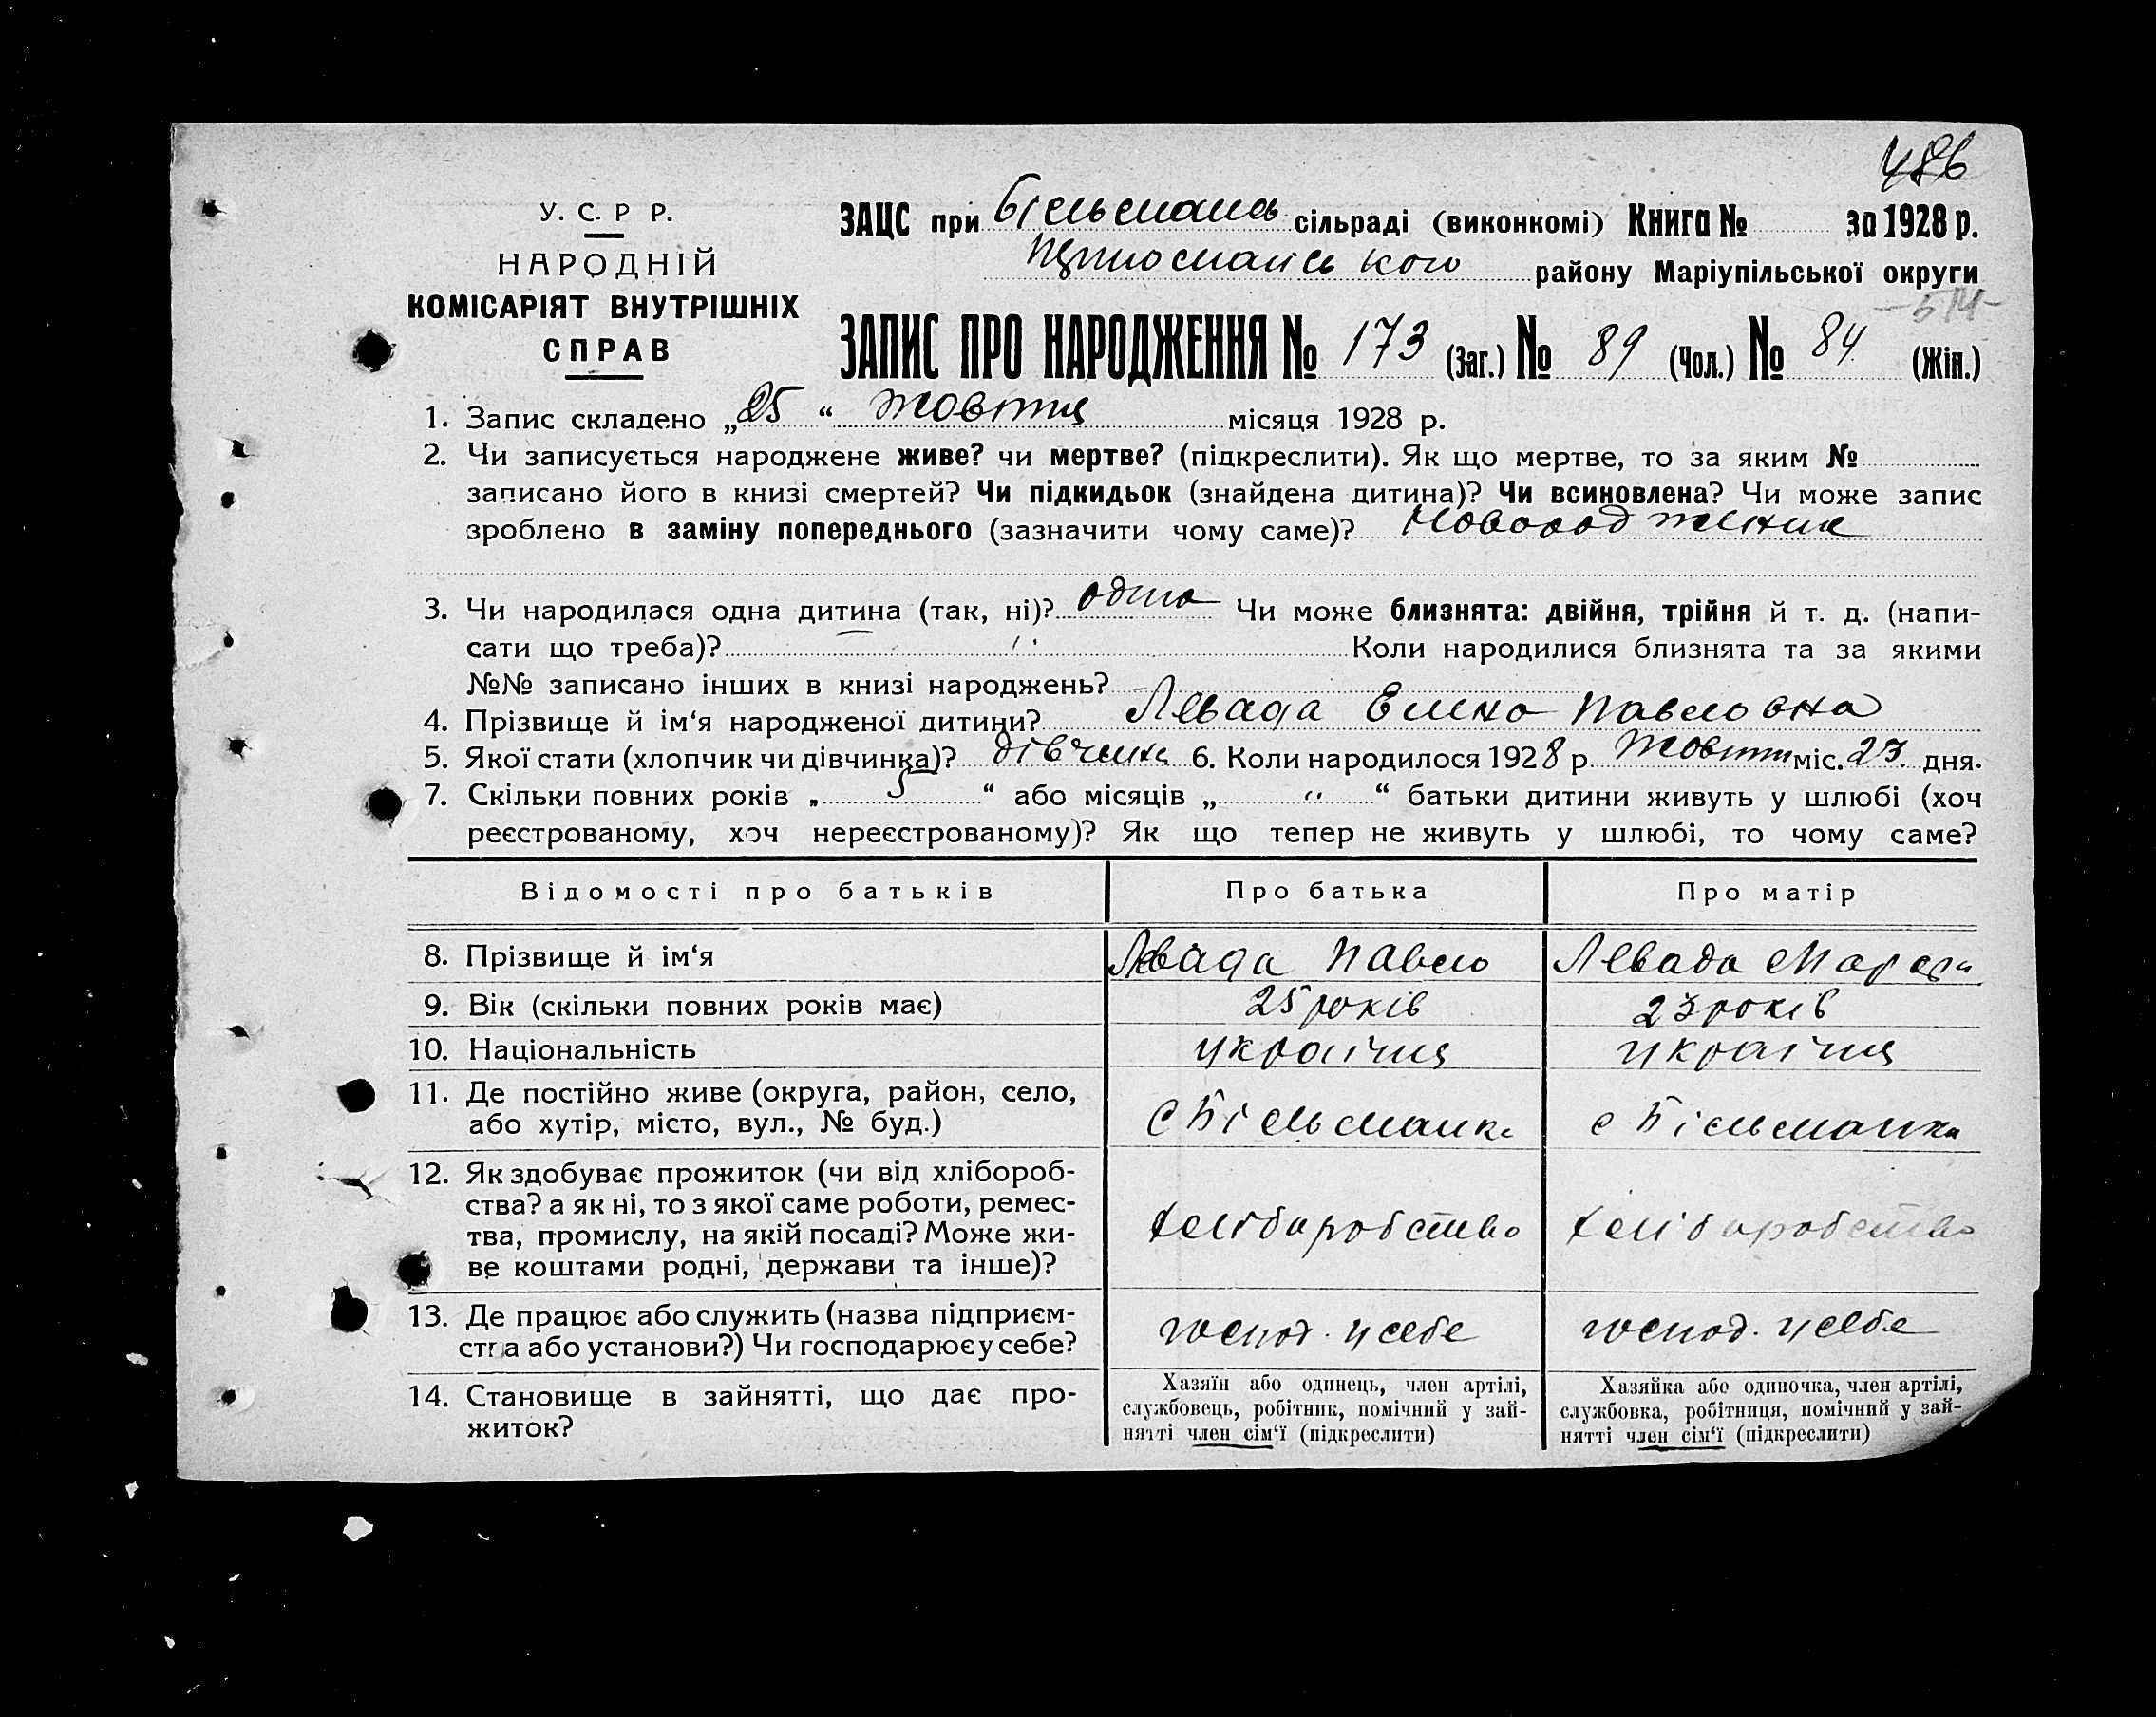 486
У. С. Р Р.
НАРОДНІЙ
КОМІСАРІЯТ ВНУТРІШНІХ
СПРАВ
ЗАЦС при Більмансь сільраді (виконкомі) Книга № за 1928 р.
району Маріупільської округи
-514-
ЗАПИС ПРО НАРОДЖЕННЯ № 173 (Заг.) № 89 (Чол.) № 84 (Жін.)
1. Запис складено „25“ жовтня місяця 1928 р.
2. Чи записується народжене живе? чи мертве? (підкреслити). Як що мертве, то за яким №
записано його в книзі смертей? Чи підкидьок (знайдена дитина)? Чи всиновлена? Чи може запис
зроблено в заміну попереднього (зазначити чому саме)?
3. Чи народилася одна дитина (так, ні)? одна Чи може близнята: двійня, трійня й т. д. (напи-
сати що треба)? Коли народилися близнята та за якими
№№ записано інших в книзі народжень?
4. Прізвище й ім‘я народженої дитини? Левада Павловна
5. Якої стати (хлопчик чи дівчинка)? дівчина 6. Коли народилося 1928 р. жовтн міс. 23. дня.
7. Скільки повних років „ 5 “ або місяців „ " “ батьки дитини живуть у шлюбі (хоч
реєстрованому, хоч нереєстрованому)? Як що тепер не живуть у шлюбі, то чому саме?
Відомості про батьків Про батька Про матір
8. Прізвище й ім‘я Левада Павло Левада
9. Вік (скільки повних років має) 25 років 23 років
10. Національність українц українц
11. Де постійно живе (округа, район, село,
або хутір, місто, вул., № буд.) с Більманка с Більманка
12. Як здобуває прожиток (чи від хлібороб-
ства? а як ні, то з якої саме роботи, ремес-
тва, промислу, на якій посаді? Може жи-
ве коштами родні, держави та інше)? хліборобство хліборобство
13. Де працює або служить (назва підприєм-
ства або установи?) Чи господарює у себе? господ. у себе господ. у себе
14. Становище в зайнятті, що дає про-
житок?
Хазяїн або одинець, член артілі,
службовець, робітник, помічний у зай-
нятті член сім‘ї (підкреслити)
Хазяйка або одиночка, член артілі,
службовка, робітниця, помічний у зай-
нятті член сім‘ї (підкреслити)